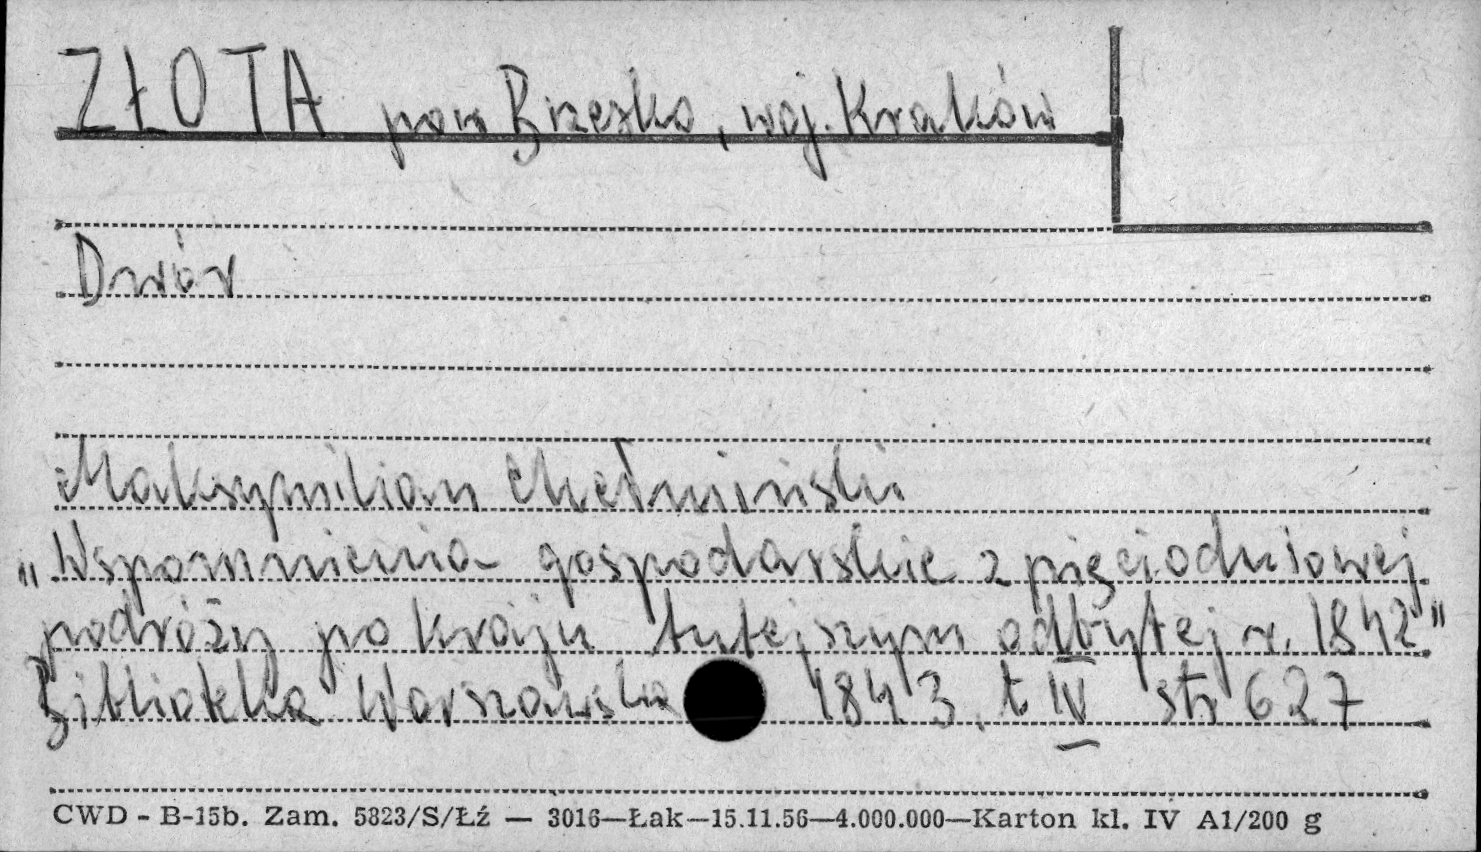 ZŁOTA pow Brzesko, woj. Kraków
Dwór
Maksymilian Chełmiński
„Wspomnienia gospodarskie z pięciodniowej
podróży po kraju tutejszym odbytej r. 1842"
Biblioteka Warszawska 1843, t IV str 627
CWD - B-15b. Zam. 5823/S/Łź — 3016—Łak—15.11.56—4.000.000—Karton kl. IV A1/200 g